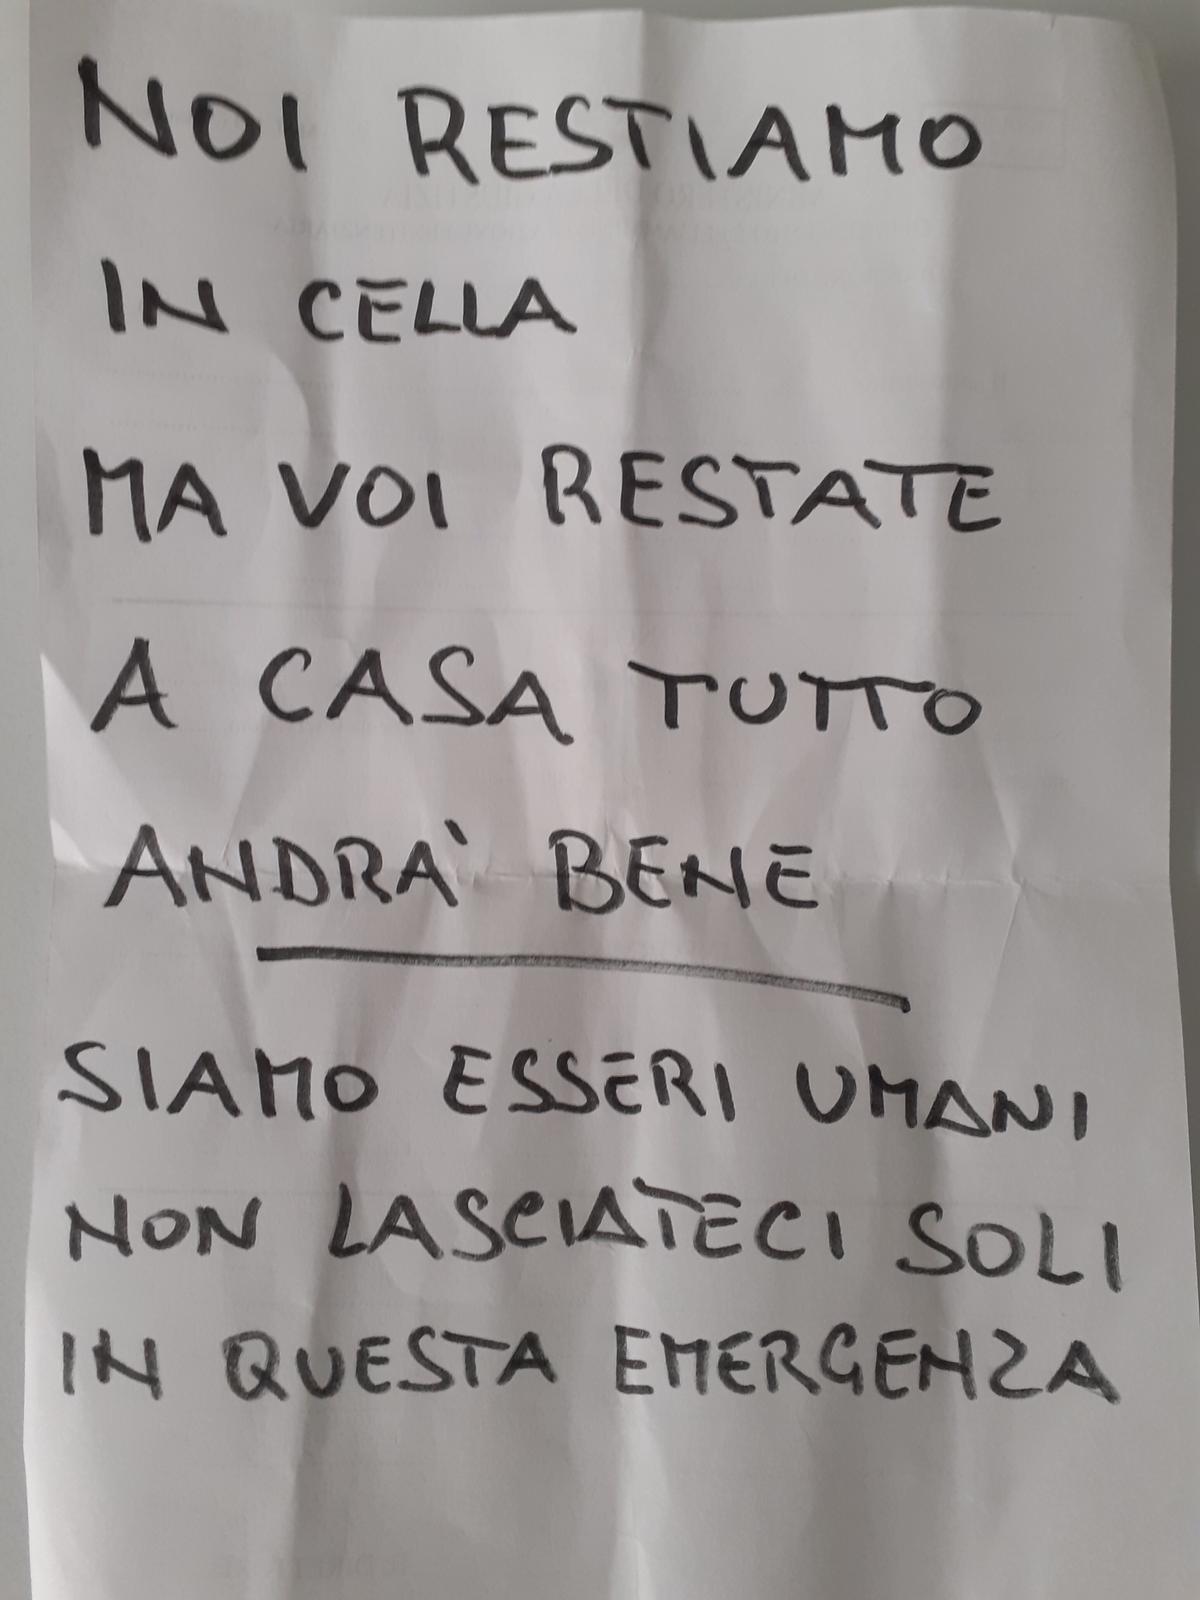 NOI RESTIAMO
IN CELLA
MA VOI RESTATE
A CASA TUTTO
ANDRA' BENE
SIAMO ESSERI UMANI
NON LASCIATECI SOLI
IN QUESTA EMERGENZA